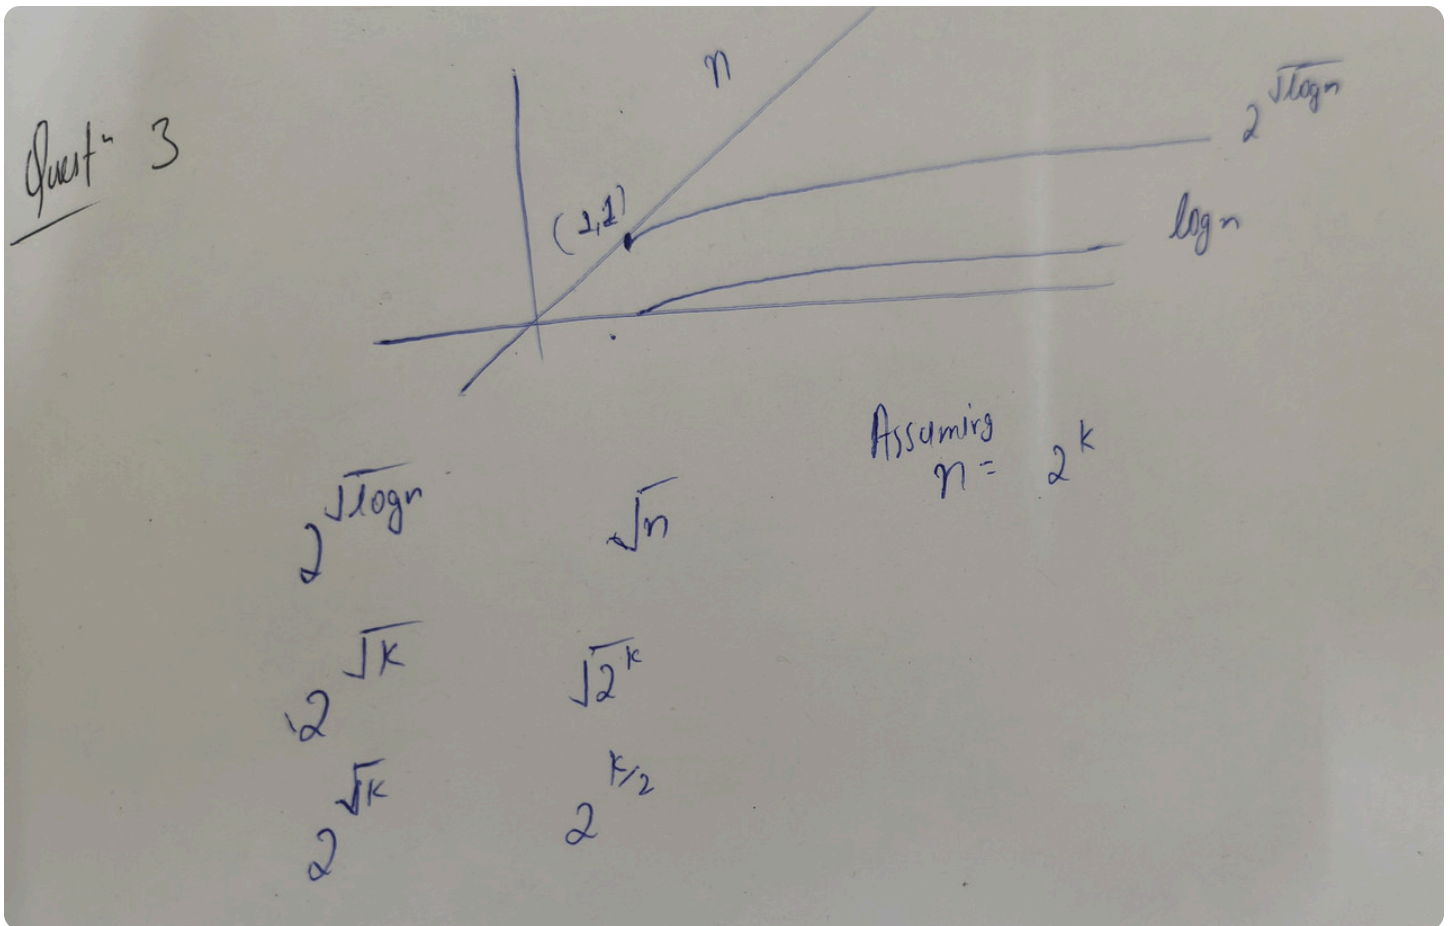 Questⁿ 3
n
2^√logn
(1,1)
logn
Assuming
n = 2^k
2^√logn √n
2^√k √2^k
2^√k 2^k/2